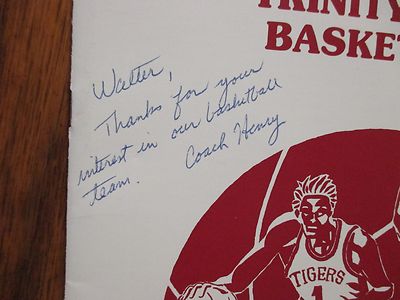 TRINITY
BASKET
Walter,
Thanks for your
interest in our basketball
team. Coach Henry
TIGERS
1